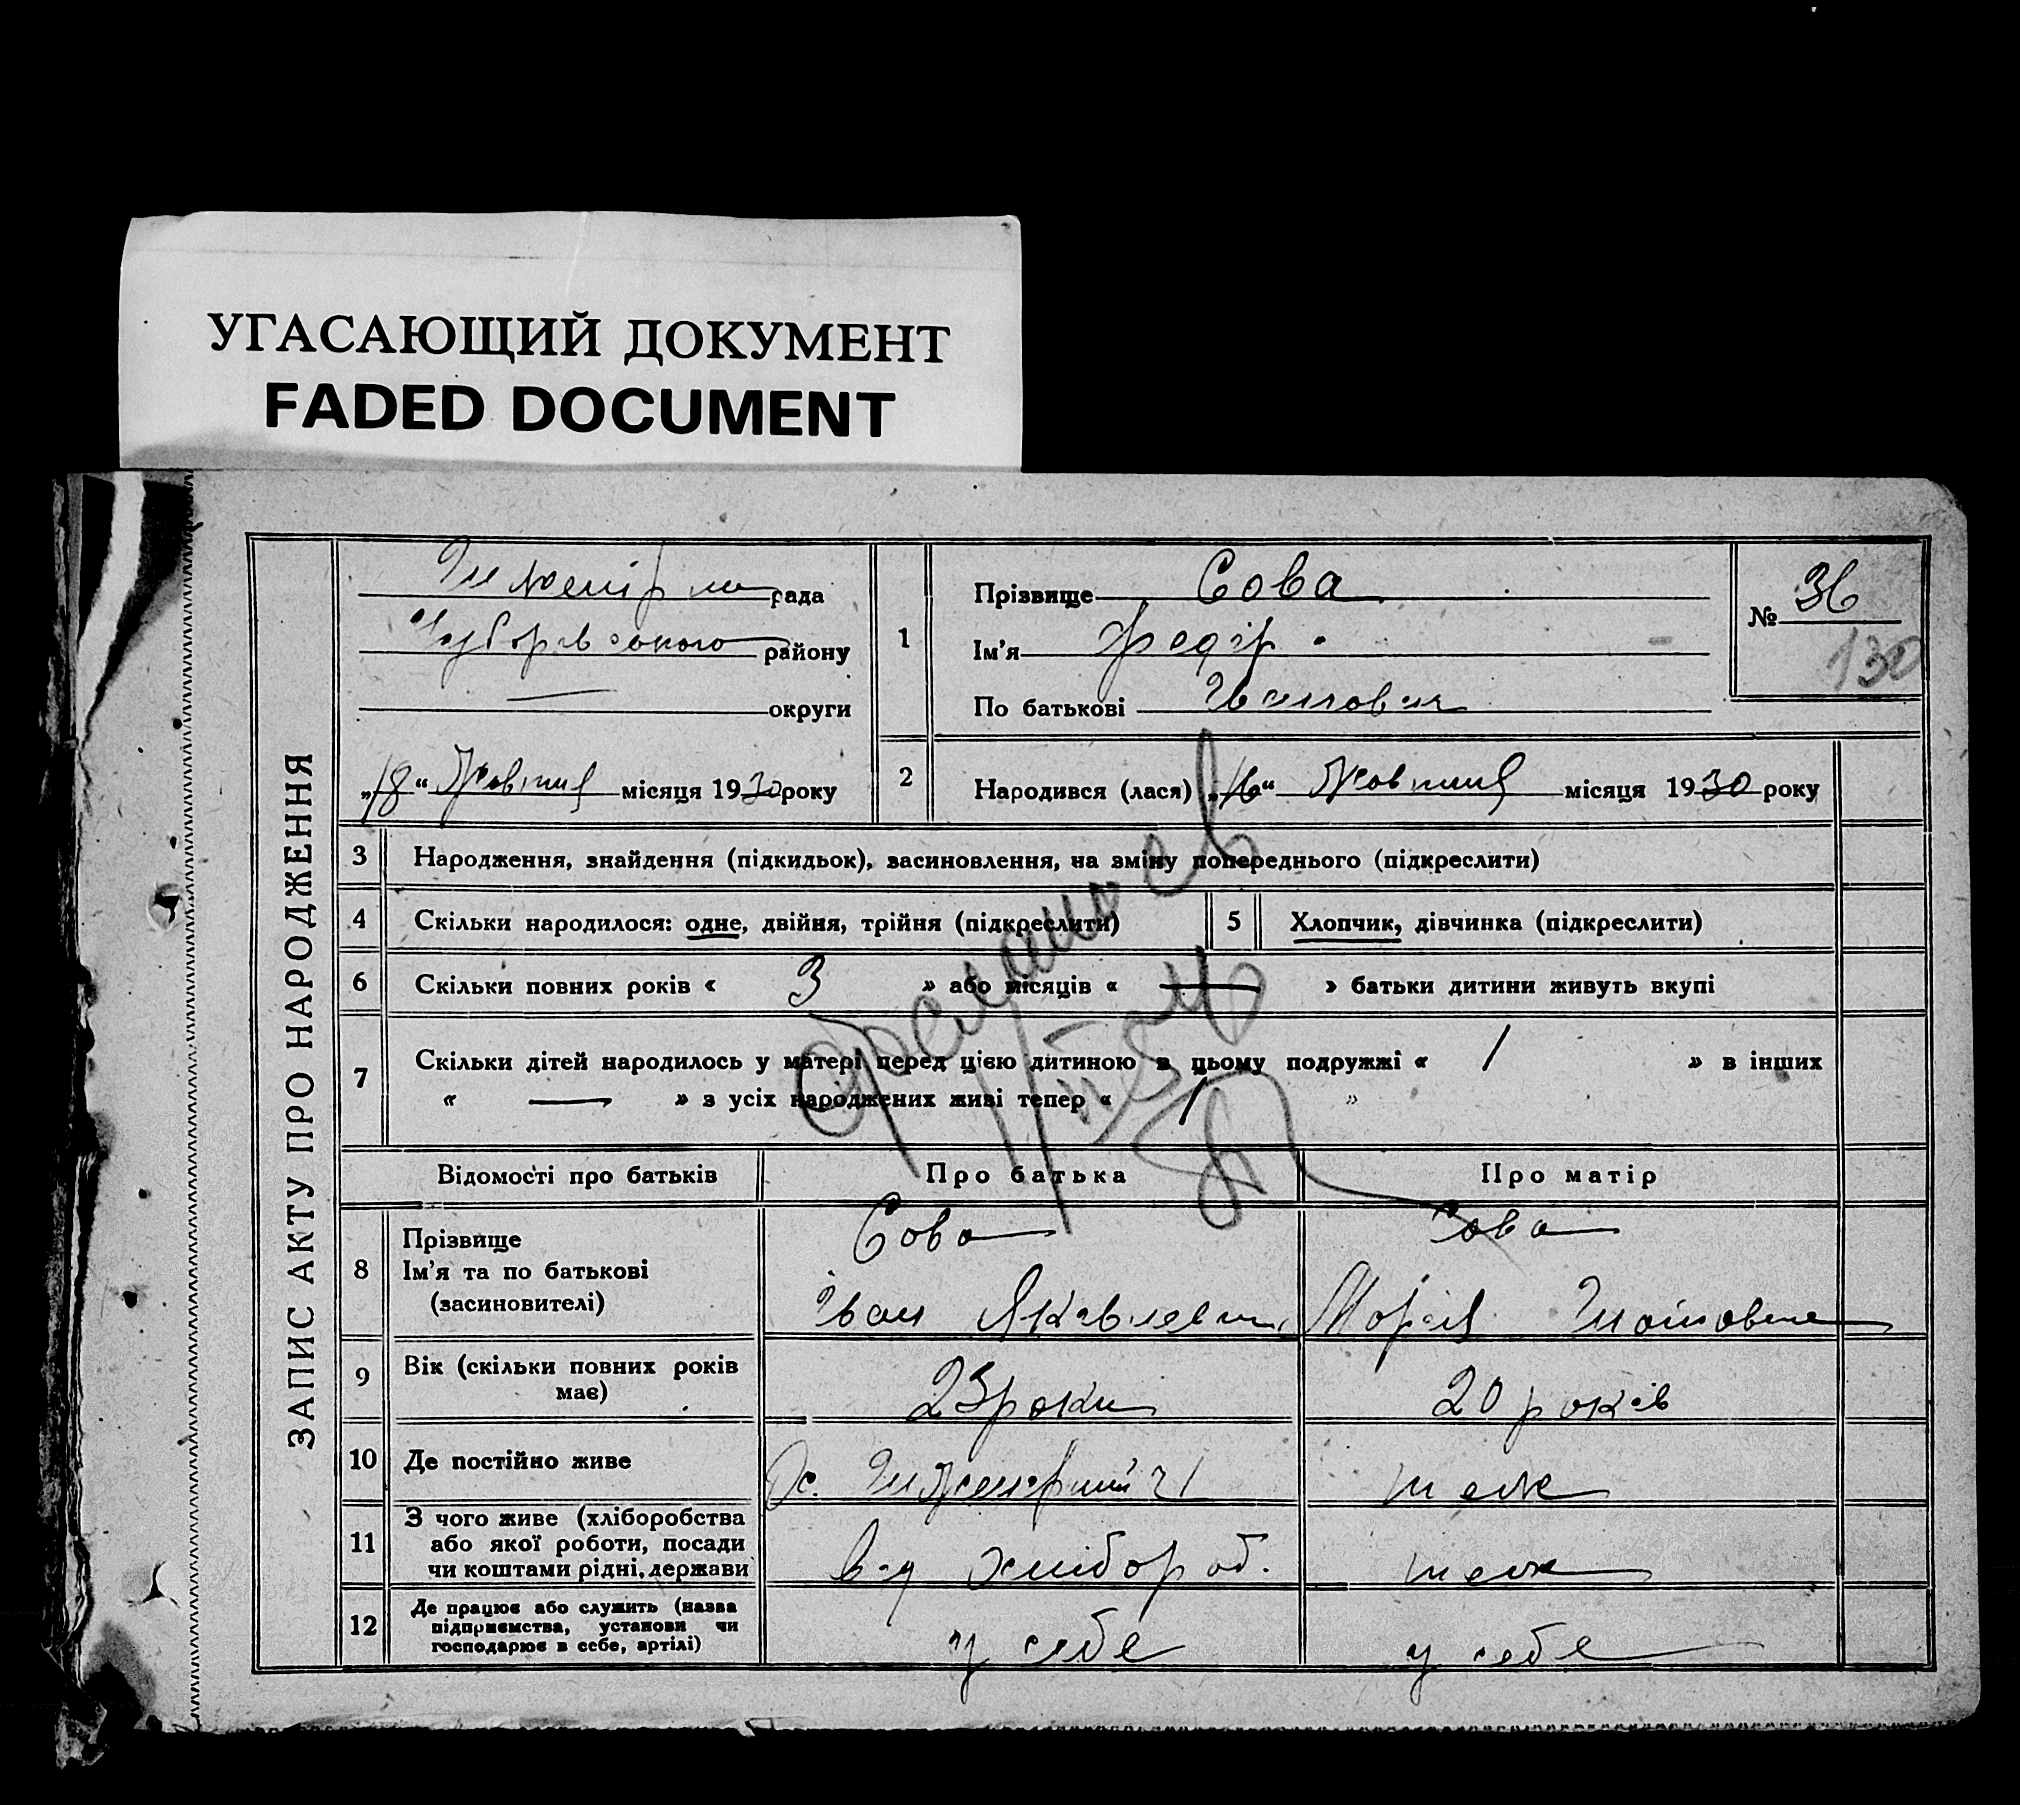 УГАСАЮЩИЙ ДОКУМЕНТ
FADED DOCUMENT
ЗАПИС АКТУ ПРО НАРОДЖЕННЯ
рада
району
округи
„18“ Жовтня місяця 1930 року
№ 36
130
1
Прізвище Сова
Ім'я Федір
По батькові Іванович
2 Народився (лася) „16“ Жовтня місяця 1930 року
3 Народження, знайдення (підкидьок), засиновлення, на зміну попереднього (підкреслити)
4 Скільки народилося: одне, двійня, трійня (підкреслити) 5 Хлопчик, дівчинка (підкреслити)
6 Скільки повних років « 3 » або місяців « — » батьки дитини живуть вкупі
7 Скільки дітей народилось у матері перед цією дитиною в цьому подружжі « 1 » в інших
« — » з усіх народжених живі тепер « 1 »
Відомості про батьків Про батька Про матір
8 Прізвище
Ім'я та по батькові
(засиновителі)
Сова Сова
Іван Яковлевич Марія
9 Вік (скільки повних років
має)
23 роки 20 років
10 Де постійно живе
х. теж
11 З чого живе (хліборобства
або якої роботи, посади
чи коштами рідні, держави
від хлібороб. теж
12 Де працює або служить (назва
підприємства, установи чи
господарює в себе, артілі)
у себе у себе